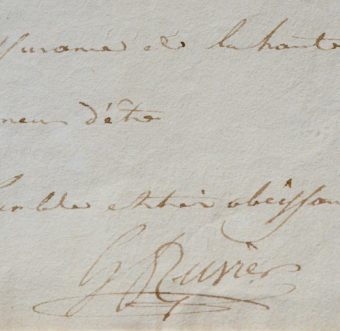 ssurance de la haute
neur d'être
humble et très obéissan
G Cuvier